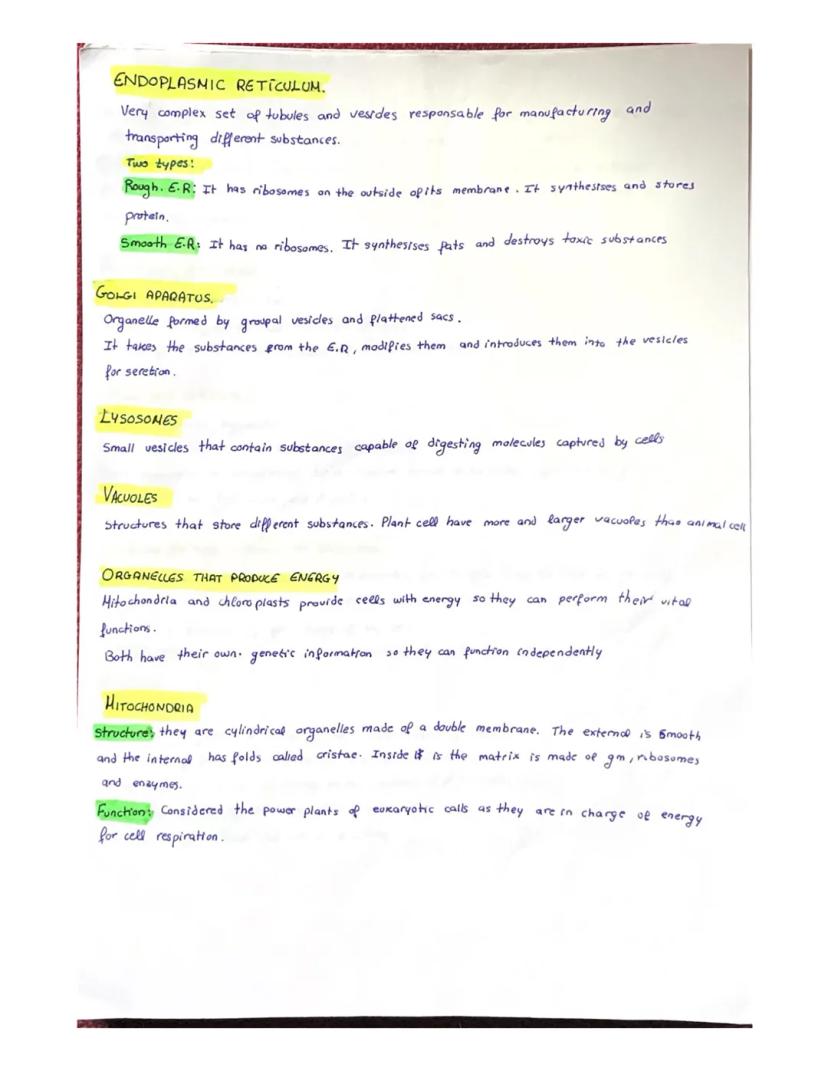 ENDOPLASMIC RETICULUM.
Very complex set of tubules and vesicles responsable for manufacturing and
transporting different substances.
Two types:
Rough. E.R: It has ribosomes on the outside of its membrane. It synthesises and stores
protein.
Smooth E.R: It has no ribosomes. It synthesises fats and destroys toxic substances
GOLGI APARATUS.
Organelle formed by groupal vesicles and flattened sacs.
It takes the substances from the E.R, modifies them and introduces them into the vesicles
for seretion.
LYSOSOMES
Small vesicles that contain substances capable of digesting molecules captured by cells
VACUOLES
Structures that store different substances. Plant cell have more and larger vacuoles than animal cell
ORGANELLES THAT PRODUCE ENERGY
Mitochondria and chloroplasts provide cells with energy so they can perform their vital
functions.
Both have their own. genetic information so they can function independently
MITOCHONDRIA
Structure: they are cylindrical organelles made of a double membrane. The external is smooth
and the internal has folds called cristae. Inside it is the matrix is made of gm, ribosomes
and enzymes.
Function: Considered the power plants of eukaryotic calls as they are in charge of energy
for cell respiration.